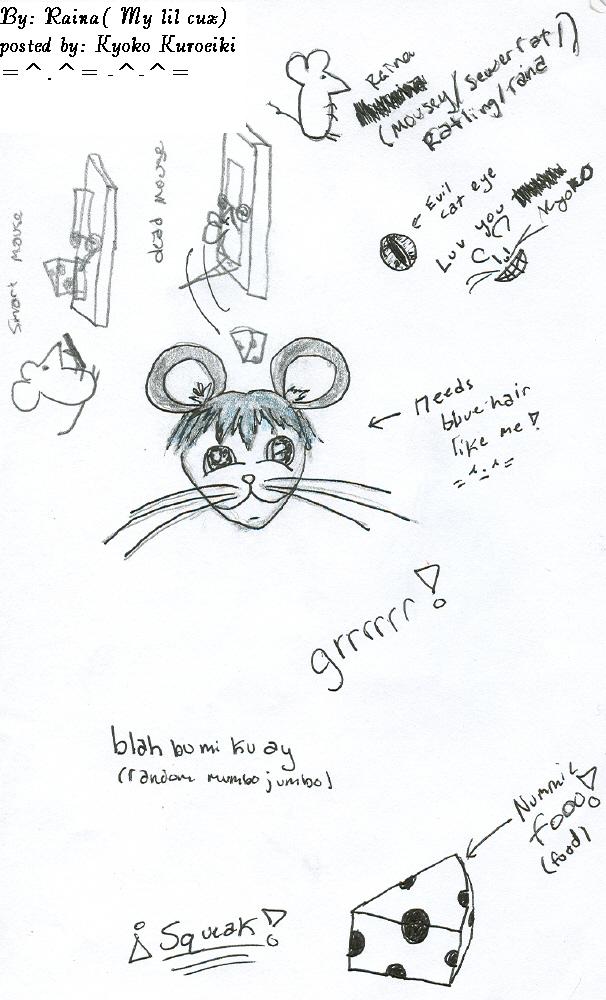 By: Raina( My lil cuz)
posted by: Kyoko Kuroeiki
=^.^= -^-^=
Raina
(Mousey/Sewerrat/
Ratling/raina))
Evil
cat eye
Luv you
Kyoko
Smart mouse
dead mouse
Needs
blue hair
like me!
grrrrrr!
blah bumi ku ay
(random mumbo jumbo)
Nummie
fooo!
(food)
¡Squeak!